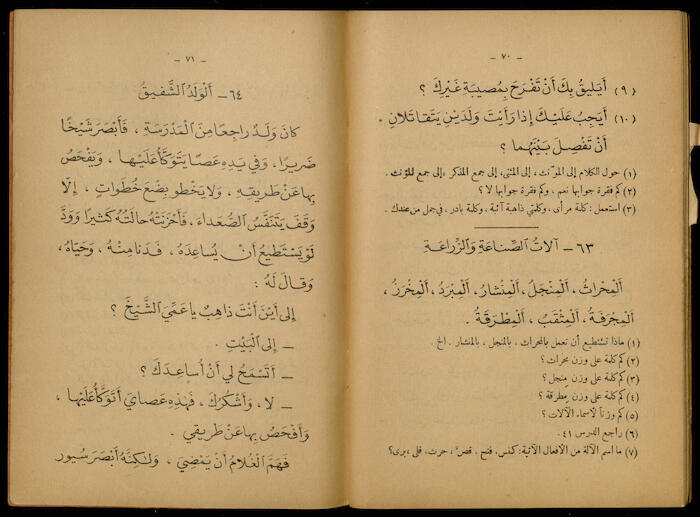 - ٧٠ -
(٩) أَيَلِيقُ بِكَ أَنْ تَفْرَحَ بِمُصِيبَةِ غَيْرِكَ ؟
(١٠) أَيَجِبُ عَلَيْكَ إِذَا رَأَيْتَ وَلَدَيْنِ يَتَقَاتَلَانِ ،
أَنْ تَفْصِلَ بَيْنَهُمَا ؟
(١) حول الكلام إلى المؤنث، إلى المثنى، إلى جمع المذكر، إلى جمع المؤنث .
(٢) كم فقرة جوابها نعم ، وكم فقرة جوابها لا ؟
(٣) استعمل : كلمة مرأى ، وكلمتي ذاهبة آتية ، وكلمة بادر ، في جمل من عندك .
٦٣ - آلَاتُ الصِّنَاعَةِ وَالزِّرَاعَةِ
اَلْمِحْرَاثُ ، اَلْمِنْجَلُ ، اَلْمِنْشَارُ ، اَلْمِبْرَدُ ، اَلْمِخْرَزُ ،
اَلْمِجْرَفَةُ ، اَلْمِثْقَبُ ، اَلْمِطْرَقَةُ .
(١) ماذا تستطيع أن تعمل بالمحراث ، بالمنجل ، بالمنشار . الخ .
(٢) كم كلمة على وزن محراث ؟
(٣) كم كلمة على وزن مِنجل ؟
(٤) كم كلمة على وزن مِطرقة ؟
(٥) كم وزناً لاسماء الآلات ؟
(٦) راجع الدرس ٤١ .
(٧) ما اسم الآلة من الأفعال الآتية: كنس ، فتح ، قصّ ، حرث، قلى، برى؟
- ٧١ -
٦٤ - اَلْوَلَدُ الشَّفِيقُ
كَانَ وَلَدٌ رَاجِعًا مِنَ الْمَدْرَسَةِ ، فَأَبْصَرَ شَيْخًا
ضَرِيرًا ، وَفِي يَدِهِ عَصًا يَتَوَكَّأُ عَلَيْهَا ، وَيَفْحَصُ
بِهَا عَنْ طَرِيقِهِ ، وَلَا يَخْطُو بِضْعَ خُطُوَاتٍ ، إِلَّا
وَقَفَ يَتَنَفَّسُ الصُّعَدَاءَ، فَأَحْزَنَتْهُ حَالَتُهُ كَثِيرًا وَوَدَّ
لَوْ يَسْتَطِيعُ أَنْ يُسَاعِدَهُ ، فَدَنَا مِنْهُ ، وَحَيَّاهُ ،
وَقَالَ لَهُ :
إِلَى أَيْنَ أَنْتَ ذَاهِبٌ يَا عَمِّيَ الشَّيْخَ ؟
– إِلَى الْبَيْتِ .
– أَتَسْمَحُ لِي أَنْ أُسَاعِدَكَ ؟
– لَا ، وَأَشْكُرُكَ ، فَهَذِهِ عَصَايَ أَتَوَكَّأُ عَلَيْهَا ،
وَأَفْحَصُ بِهَا عَنْ طَرِيقِي .
فَهَمَّ الْغُلَامُ أَنْ يَمْضِيَ ، وَلَكِنَّهُ أَبْصَرَ سُيُورَ